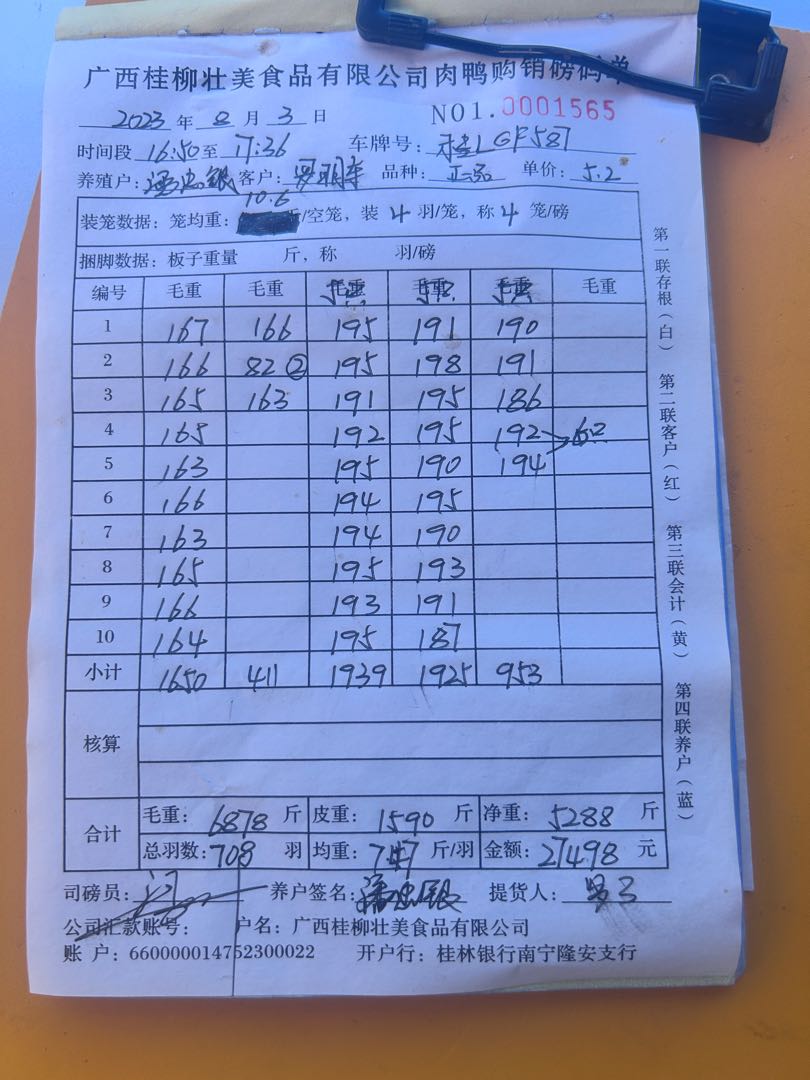 广西桂柳壮美食品有限公司肉鸭购销磅码单
2023 年 8 月 3 日 NO1.0001565
时间段 16:50 至 17:36 车牌号: 桂LGF587
养殖户: 客户: 罗明 品种: 正品 单价: 5.2
10.6
装笼数据: 笼均重: /空笼, 装 4 羽/笼, 称 4 笼/磅
捆脚数据: 板子重量 斤, 称 羽/磅
编号 毛重 毛重 毛重 毛重 毛重 毛重
1 167 166 195 191 190
2 166 82② 195 198 191
3 165 163 191 195 186
4 165 192 195 192
5 163 195 190 194
6 166 194 195
7 163 194 190
8 165 195 193
9 166 193 191
10 164 195 187
小计 1650 411 1939 1925 953
核算
合计 毛重: 6878 斤 皮重: 1590 斤 净重: 5288 斤
总羽数: 708 羽 均重: 7.47 斤/羽 金额: 27498 元
司磅员: 养户签名: 提货人:
公司汇款账号: 户名: 广西桂柳壮美食品有限公司
账 户: 660000014752300022 开户行: 桂林银行南宁隆安支行
第一联存根(白) 第二联客户(红) 第三联会计(黄) 第四联养户(蓝)